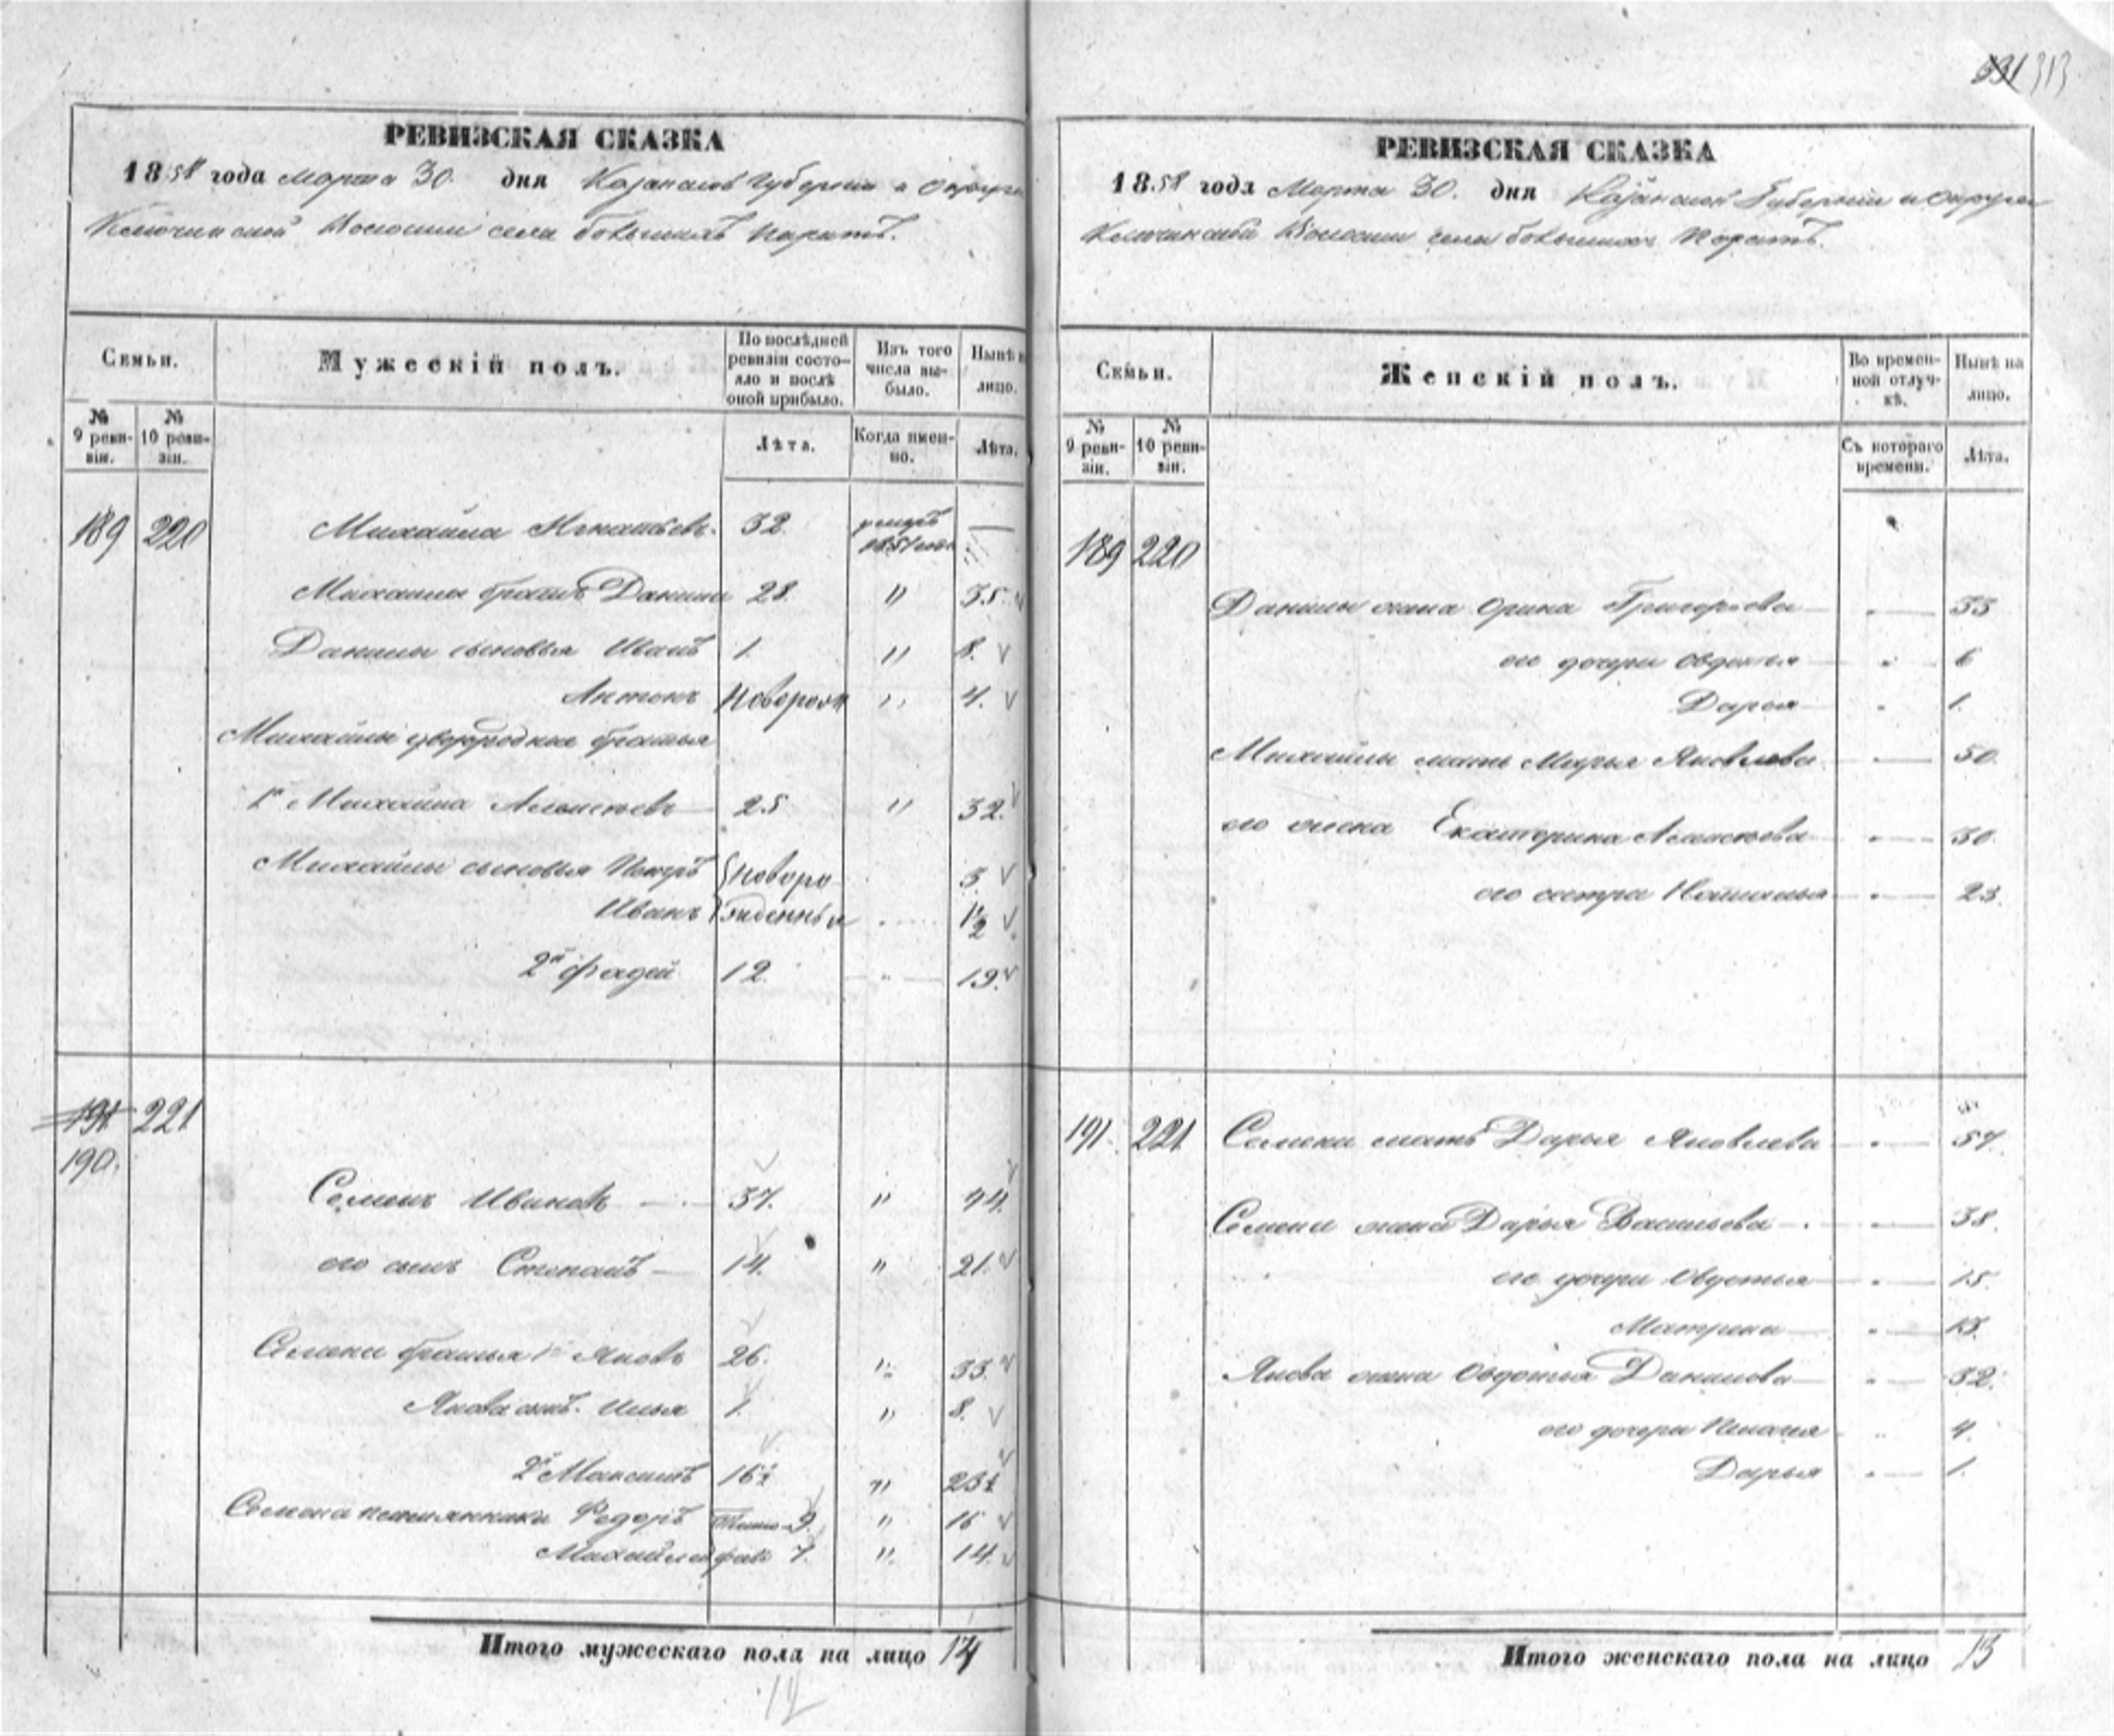 331 313
РЕВИЗСКАЯ СКАЗКА
1858 года Марта 30. дня Казанской Губернии и Округи
Ключинской Волости села большихъ Паратъ.
Семьи.
Мужескій полъ.
По послѣдней ревизіи состояло и послѣ оной прибыло.
Изъ того числа выбыло.
Нынѣ на лицо.
№ 9 ревизіи.
№ 10 ревизіи.
Лѣта.
Когда именно.
Лѣта.
189 220 Михайла Игнатьевъ. 32. умеръ 1851 —
Михайлы братъ Данила 28. " 35.
Данилы сыновья Иванъ 1. " 8.
Антонъ Новорож " 4.
Михайлы двоюродные братья
1й Михайла Алексѣевъ 25 " 32.
Михайлы сыновья Петръ Новоро 3.
Иванъ жденныя 1/2
2й Фадей 12. " 19.
191 221
190.
Семенъ Ивановъ — 37. " 44.
его сынъ Степанъ — 14. " 21.
Семена братья 1й Яковъ 26. " 33.
Якова сынъ. Илья 1. " 8.
2й Максимъ 16½ " 23½
Семена племянники Федоръ 9. " 16
Михайла 7. " 14.
Итого мужескаго пола на лицо 14
12
РЕВИЗСКАЯ СКАЗКА
1858 года Марта 30. дня Казанской Губернии и Округи
Ключинской Волости села большихъ Паратъ.
Семьи.
Женскій полъ.
Во временной отлучкѣ.
Нынѣ на лицо.
№ 9 ревизіи.
№ 10 ревизіи.
Съ котораго времени.
Лѣта.
189 220
Данилы жена Орина Григорьева — 33
его дочери Овдотья — 6
Дарья — 1.
Михайлы мать Марья Яковлева — 50.
его жена Екатерина Алексѣева — 30.
его сестра Наталья — 23.
191. 221 Семена мать Дарья Яковлева — 57.
Семена жена Дарья Васильева — 38.
его дочери Овдотья — 15.
Матрена — 13.
Якова жена Овдотья Данилова — 32.
его дочери Пелагея 4.
Дарья — 1.
Итого женскаго пола на лицо 13